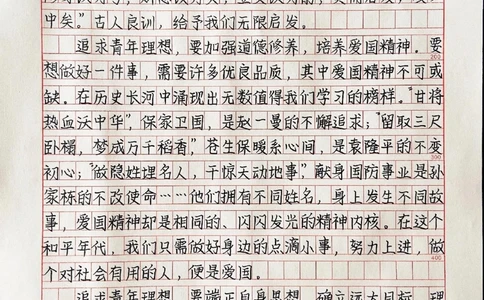 中矣。”古人良训，给予我们无限启发。
追求青年理想，要加强道德修养，培养爱国精神。要
200
想做好一件事，需要许多优良品质，其中爱国精神不可或
缺。在历史长河中涌现出无数值得我们学习的榜样。“甘将
热血沃中华”，保家卫国，是赵一曼的不懈追求；“留取三尺
卧榻，梦成万千稻香”，苍生保暖系心间，是袁隆平的不变
300
初心；“做隐姓埋名人，干惊天动地事”，献身国防事业是孙
家栋的不改使命……他们拥有不同姓名，身上发生不同故
事，爱国精神却是相同的、闪闪发光的精神内核。在这个
和平年代，我们只需做好身边的点滴小事，努力上进，做
400
个对社会有用的人，便是爱国。
追求青年理想，要端正自身思想，确立远大目标。理